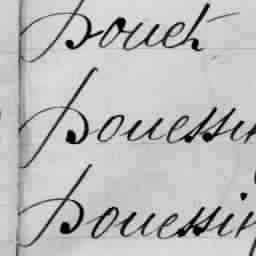 pouet
pouessi
pouessi